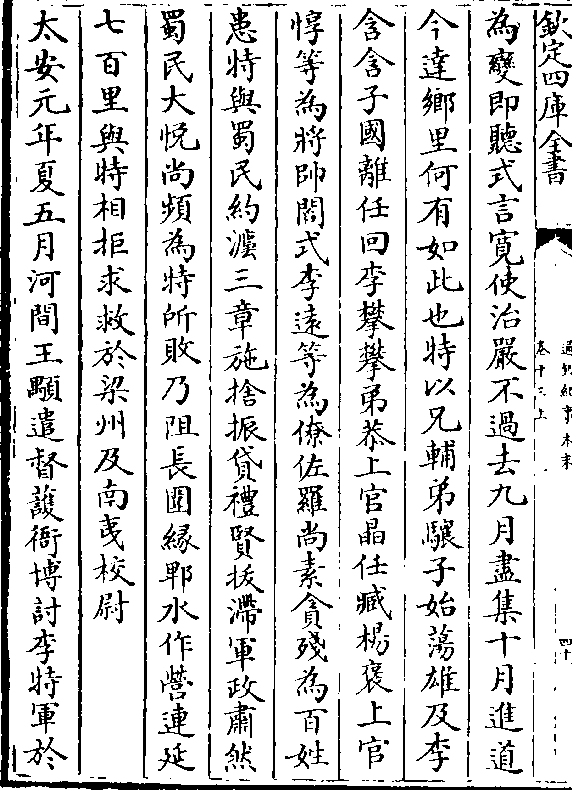 欽定四庫全書
通鑑紀事本末
卷十三上
四十
為變即聽式言寛使治嚴不過去九月盡集十月進道
今達鄉里何有如此也特以兄輔弟驤子始蕩雄及李
含含子國離任回李攀攀弟恭上官晶任臧楊襃上官
惇等為將帥閻式李逺等為僚佐羅尚素貪殘為百姓
患特與蜀民約灋三章施捨振貸禮賢拔滯軍政肅然
蜀民大悦尚頻為特所敗乃阻長圍緣郫水作營連延
七百里與特相拒求救於梁州及南夷校尉
太安元年夏五月河間王顒遣督護衙博討李特軍於